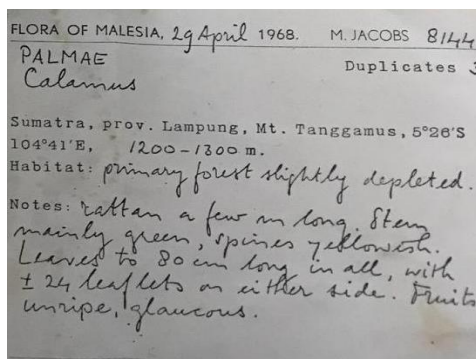 FLORA OF MALESIA, 29 April 1968. M. JACOBS 8144
PALMAE
Duplicates 3
Calamus
Sumatra, prov. Lampung, Mt. Tanggamus, 5°26'S
104°41'E, 1200-1300 m.
Habitat: primary forest slightly depleted.
Notes: rattan a few m long. Stem
mainly green, spines yellowish.
Leaves to 80 cm long in all, with
± 24 leaflets on either side. Fruits
unripe, glaucous.